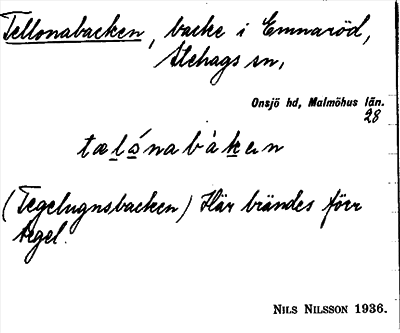 Tellonabacken, backe i Emmaröd,
Stehags sn,
Onsjö hd, Malmöhus län.
28
tælónabàken
(Tegelugnsbacken) Här brändes förr
tegel.
NILS NILSSON 1936.